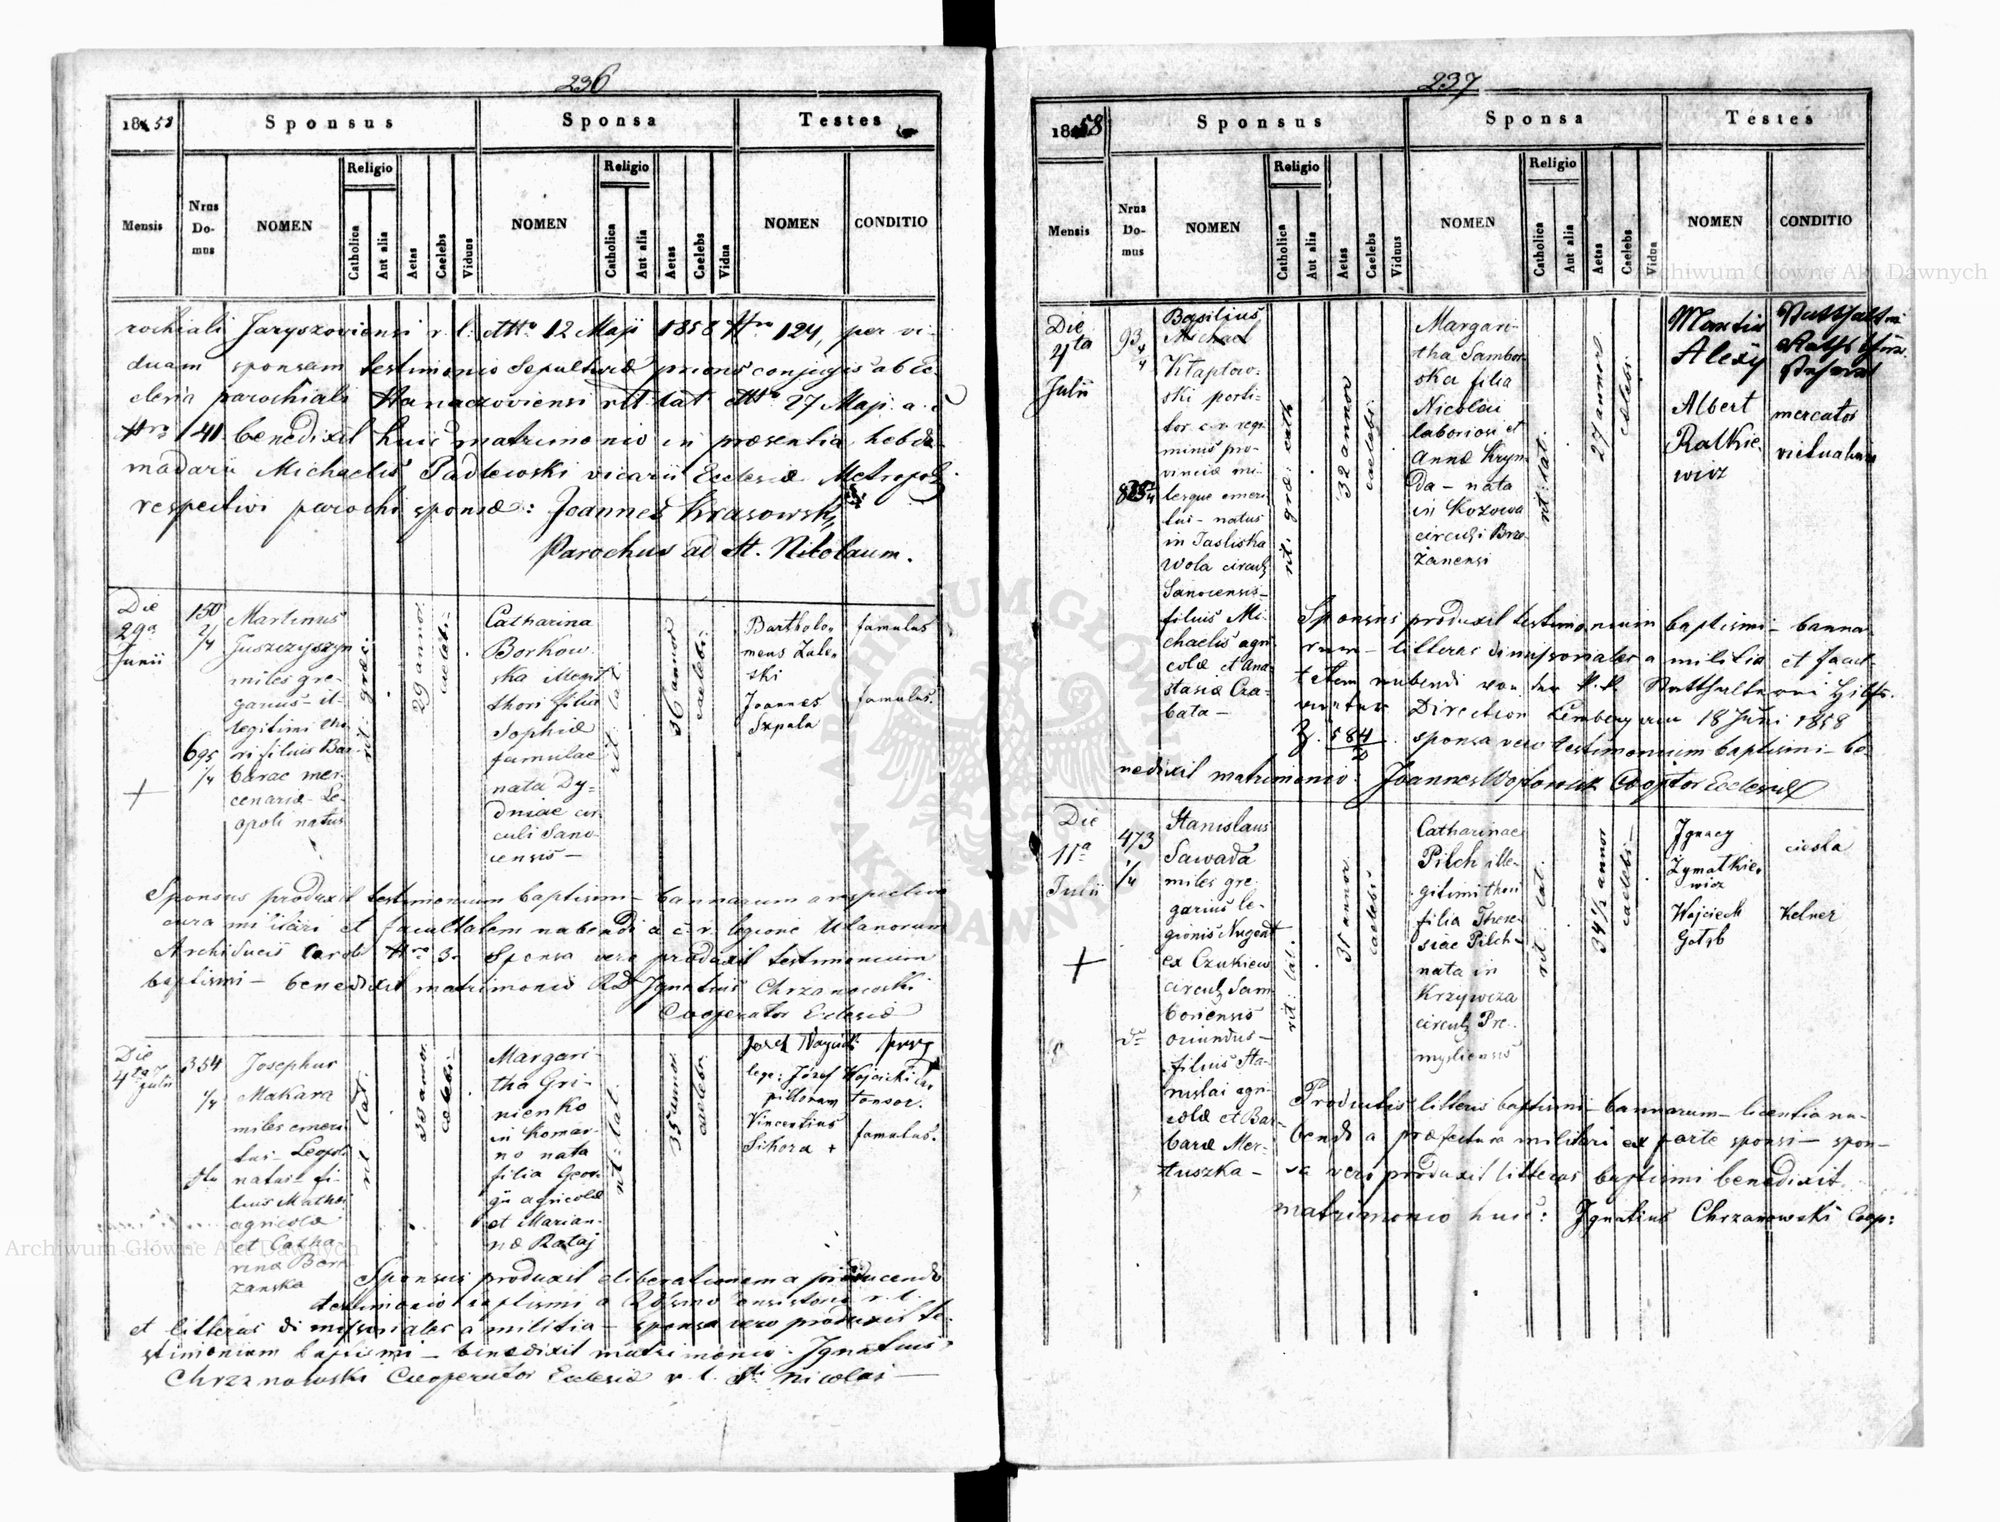 236
1858
Sponsus
Sponsa
Testes
Mensis
Nrus Do-mus
NOMEN
Religio
Catholica
Aut alia
Aetas
Caelebs
Viduus
NOMEN
Religio
Catholica
Aut alia
Aetas
Caelebs
Vidua
NOMEN
CONDITIO
rochiali Jaryszoviensi r. l. 12 Maji 1858 Nro 124, per vi-
duam sponsam testimonio sepulturæ prioris conjugis ab Ec-
clesia parochiali Hanaczoviensi rit lat 27 Maji a. c.
Nro 141 benedixit huic matrimonio in præsentia hebdo-
madarii Michaelis Padlewski vicarii Ecclesiæ Metropol.
respectivi parochi sponsæ: Joannes Krasowski
Parochus ad St. Nikolaum.
Die
29a
Junii
150
2/4
695
1/4
Martinus
Juszczyszyn
miles gre-
garius il-
legitimi tho-
ri filius Bar-
barae mer-
cenariæ Le-
opoli natus
rit: græci:
29 annor.
caelebs.
Catharina
Borkow
ska illegit
thori filia
Sophiæ
famulae
nata Dy-
dniae cir
culi Sano
censis —
rit: lat:
36 annor
caelebs:
Bartholo-
meus Zale-
ski
famulus
Joannes
Szpala
famulus.
Sponsus produxit testimonium baptismi — bannarum a respectiva
cura militari et facultatem nubendi a c. r. legione Ulanorum
Archiducis Caroli Nro 3. Sponsa vero produxit testimonium
baptismi — benedixit matrimonio RD Ignatius Chrzanowski
Cooperator Ecclesiæ
Die
4ta
Julii
354
1/4
Josephus
Makara
miles emeri
tus Leopoli
natus fi-
lius Mathei
agricolæ
et Catha
rinæ
rit: lat:
33 annor.
caelebs.
Margari-
tha Gri-
nienko
in Komar-
no nata
filia Geor-
gii agricolæ
et Marian-
næ Rataj
rit: lat.
35 annor.
caelebs.
lege: Józef Wojcicki
pillorum tonsor.
Vincentius
Sikora +
famulus.
Sponsus produxit liberationem a producendo
testimonio baptismi a consistorio r. l.
et litteras dimissoriales a militia — sponsa vero produxit te-
stimonium baptismi — benedixit matrimonio Ignatius
Chrzanowski Cooperator Ecclesiæ r. l. Sti Nicolai —
237
1858
Sponsus
Sponsa
Testes
Mensis
Nrus Do-mus
NOMEN
Religio
Catholica
Aut alia
Aetas
Caelebs
Viduus
NOMEN
Religio
Catholica
Aut alia
Aetas
Caelebs
Vidua
NOMEN
CONDITIO
Die
4ta
Julii
93
Basilius
Michael
ski porti-
tor c. r. regi
minis pro-
vinciæ mi-
lesque emeri
tus — natus
in Jasliska
Wola circuli
Sanocensis
filius Mi-
chaelis agri
colæ et Ana
stasiæ Cza-
bata —
rit. græ: cath
32 annor
caelebs:
Margari-
tha Sambor
ska filia
Nicolai
laboriosi et
Annæ Kryn
da — nata
in Kozowa
circuli Brze
żanensi
rit: lat:
27 annor
cælebs:
Martin
Alexy
Albert
Ratkie-
wicz
mercator
victualium
Sponsus produxit testimonium baptismi — banna-
rum — litteras dimissoriales a militia et facul-
tatem nubendi von der k. k. Statthalterei Hilfs.
Direction Lemberg 18 Juni 1858
Z. 584 sponsa vero testimonium baptismi — be-
nedixit matrimonio. Joannes Cooptor Ecclesiæ
Die
11a
Julii
473
1/4
Stanislaus
Sawada
miles gre-
garius le-
gionis Nugent
ex Czukiew
circuli Sam
boriensis
oriundus —
filius Sta-
nislai agri-
colæ et Bar-
baræ Mer-
tuszka —
rit: lat.
31 annor.
caelebs
Catharinae
Pilch ille-
gitimi thori
filia There-
siae Pilch —
nata in
Krzywcza
circuli Pre-
mysliensis
rit: lat:
34 1/2 annor
caelebs —
Ignacy
Zymatkie-
wicz
ciesla
Wojciech
Gołąb
Kelner
Productis litteris baptismi — bannarum — licentia nu-
bendi a præfectura militari ex parte sponsi — spon-
sa vero produxit litteras baptismi benedixit
matrimonio huic: Ignatius Chrzanowski Coop:
Archiwum Główne Akt Dawnych
Archiwum Główne Akt Dawnych
ARCHIWUM GŁÓWNE AKT DAWNYCH